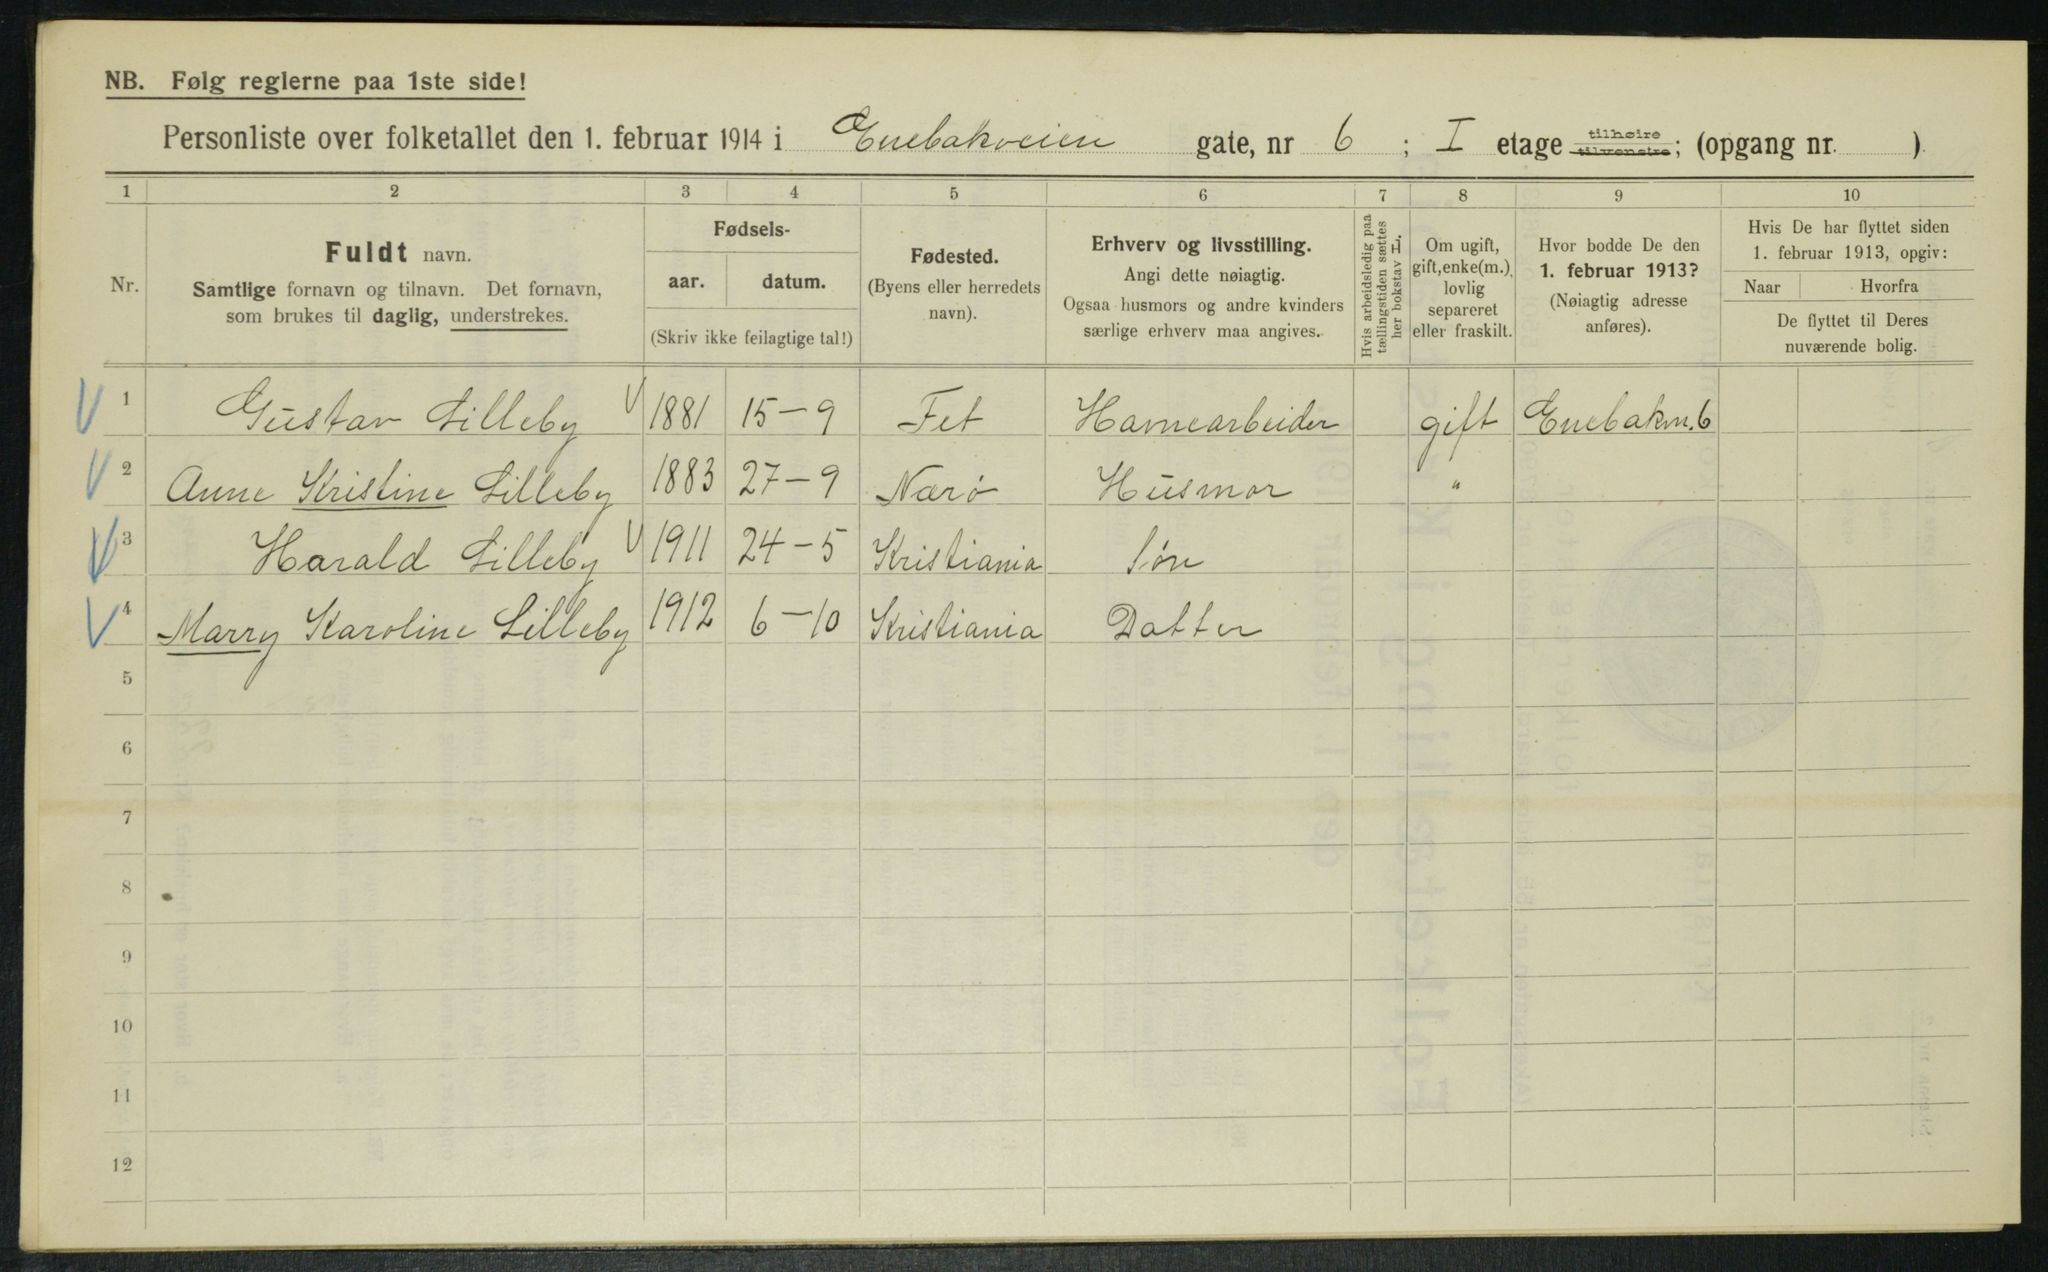 NB. Følg reglerne paa 1ste side!
Personliste over folketallet den 1. februar 1914 i Enebakveien gate, nr 6 ; I etage tilhøire tilvenstre; (opgang nr. )
1 2 3 4 5 6 7 8 9 10
Nr.
Fuldt navn.
Samtlige fornavn og tilnavn. Det fornavn,
som brukes til daglig, understrekes.
Fødsels-
aar. datum.
(Skriv ikke feilagtige tal!)
Fødested.
(Byens eller herredets
navn).
Erhverv og livsstilling.
Angi dette nøiagtig.
Ogsaa husmors og andre kvinders
særlige erhverv maa angives.
Hvis arbeidsledig paa
tællingstiden sættes
her bokstav L.
Om ugift,
gift, enke(m.),
lovlig
separeret
eller fraskilt.
Hvor bodde De den
1. februar 1913?
(Nøiagtig adresse
anføres).
Hvis De har flyttet siden
1. februar 1913, opgiv:
Naar Hvorfra
De flyttet til Deres
nuværende bolig.
1 Gustav Lilleby 1881 15-9 Fet Havnearbeider gift Enebakvn. 6
2 Anne Kristine Lilleby 1883 27-9 Nærø Husmor "
3 Harald Lilleby 1911 24-5 Kristiania Søn
4 Marry Karoline Lilleby 1912 6-10 Kristiania Datter
5
6
7
8
9
10
11
12